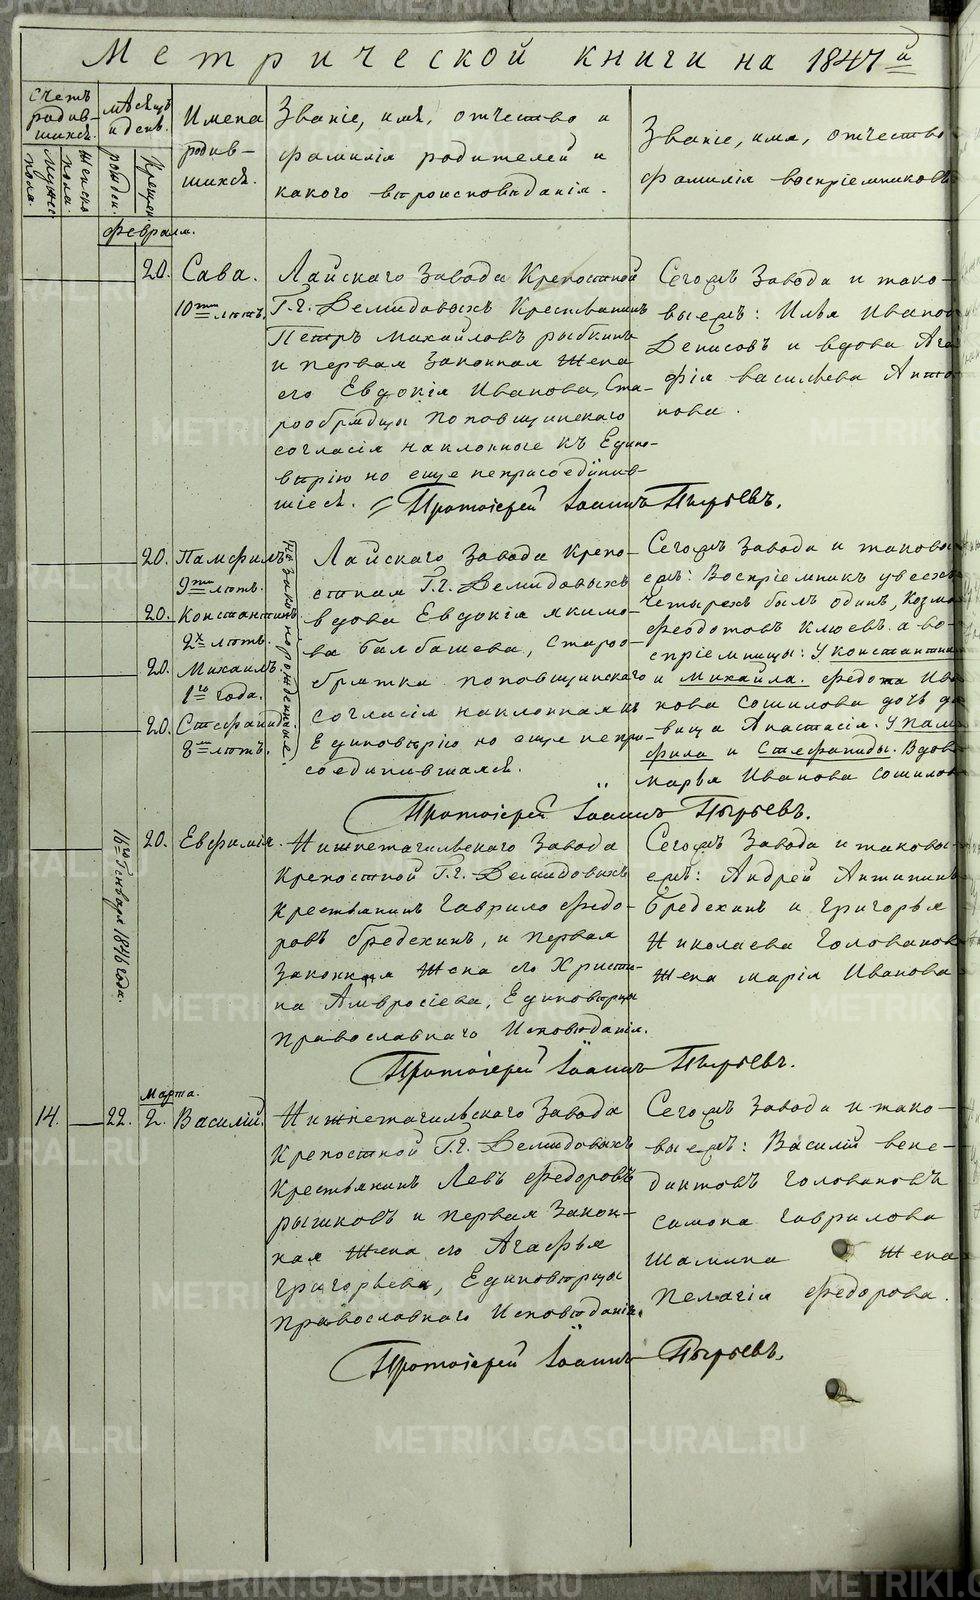 Метрической книги на 1847й
Счетъ родив-шихся.
Мужес. пола.
Женска пола.
мѣсяцъ и день.
рожден.
Крещен.
Имена
родив-
шихся.
Званіе, имя, отчество и
фамилія родителей и
какого вѣроисповѣданія.
Званіе, имя, отчество
фамилія воспріемниковъ
февраля.
20. Сава.
10ти лѣтъ.
Лайскаго Завода Крепостной
Г.г. Демидовыхъ Крестьянинъ
Петръ Михайловъ рыбкинъ
и первая Законная Жена
его Евдокія Иванова, Ста-
рообрядцы поповщинскаго
согласія наклонные къ Едино-
вѣрію но еще неприсоединив-
шіеся.
Протоіерей Іоаннъ Пырьевъ.
Сегожъ Завода и тако-
выежъ: Илья Иванов
Денисовъ и вдова Ага
фія васильева Анто
нова.
20. Памфилъ
9ти лѣтъ.
20. Константинъ
2хъ лѣтъ.
20. Михаилъ.
1го года.
20. Стефанида
8 лѣтъ.
Незаконнорожденные.
Лайскаго Завода Крепо-
стная Г.г. Демидовыхъ
вдова Евдокія якимо-
ва Балбашева, Староо-
брядка поповщинскаго
согласія наклонная къ
Единовѣрію но еще непри-
соединившаяся.
Протоіерей Іоаннъ Пырьевъ.
Сегожъ Завода и таковы-
ежъ: Воспріемникъ увсехъ
четырехъ былъ одинъ, Козма
Федотовъ Клюевъ. а во-
спріемницы: у Константина
и Михайла. Федота Ива
нова сошилова дочь де
вица Анастасія. у Пам
фила и Стефаниды. Вдова
марья Иванова сошилов
16го Генваря 1846 года.
20. Евфимія.
Нижнетагильскаго Завода
Крепостной Г.г. Демидовыхъ
Крестьянинъ Гаврило Федо-
ровъ бредехинъ, и первая
Законная Жена его Христи-
на Амвросіева, Единовѣрцы
Православнаго Исповѣданія.
Протоіерей Іоаннъ Пырьевъ.
Сегожъ Завода и таковы-
ежъ: Андрей Антипинъ
Бредехинъ и Григорья
Николаева Голованов
Жена марія Иванова
Марта.
14. 22. 2. Василій.
Нижнетагильскаго Завода
Крепостной Г.г. Демидовыхъ
Крестьянинъ Левъ Федоровъ
рышковъ и первая Закон-
ная Жена его Агафья
Григорьева, Единовѣрцы
Православнаго Исповѣданія.
Протоіерей Іоаннъ Пырьевъ.
Сегожъ Завода и тако-
выежъ: Василій вене-
диктовъ Головановъ
самона Гаврилова
Шамина Жена
Пелагія Федорова.
METRIKI.GASO-URAL.RU